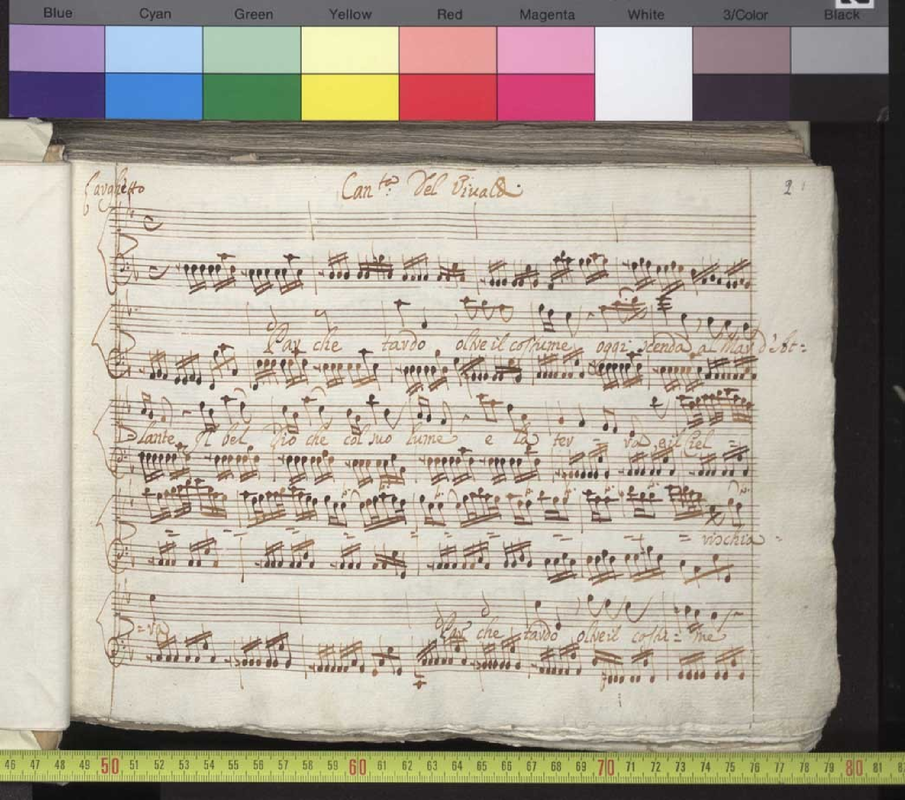 Blue Cyan Green Yellow Red Magenta White 3/Color Black
Larghetto Can.ta Del Vivaldi 2
Par che tardo oltre il costume oggi scenda al Mar d'At=
lante Il bel Dio che col suo lume e la ter = ra e il Ciel =
= = = = = = = rischia =
= ra Par che tardo oltre il costu = me
46 47 48 49 50 51 52 53 54 55 56 57 58 59 60 61 62 63 64 65 66 67 68 69 70 71 72 73 74 75 76 77 78 79 80 81